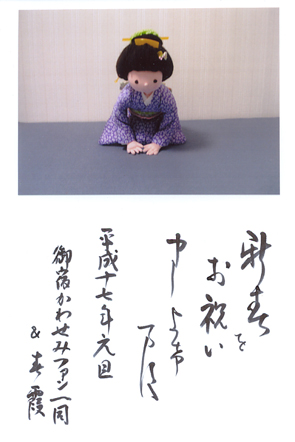 新春を
お祝い
申し上げ
ます
平成十七年元旦
御宿かわせみファン一同
& 春霞